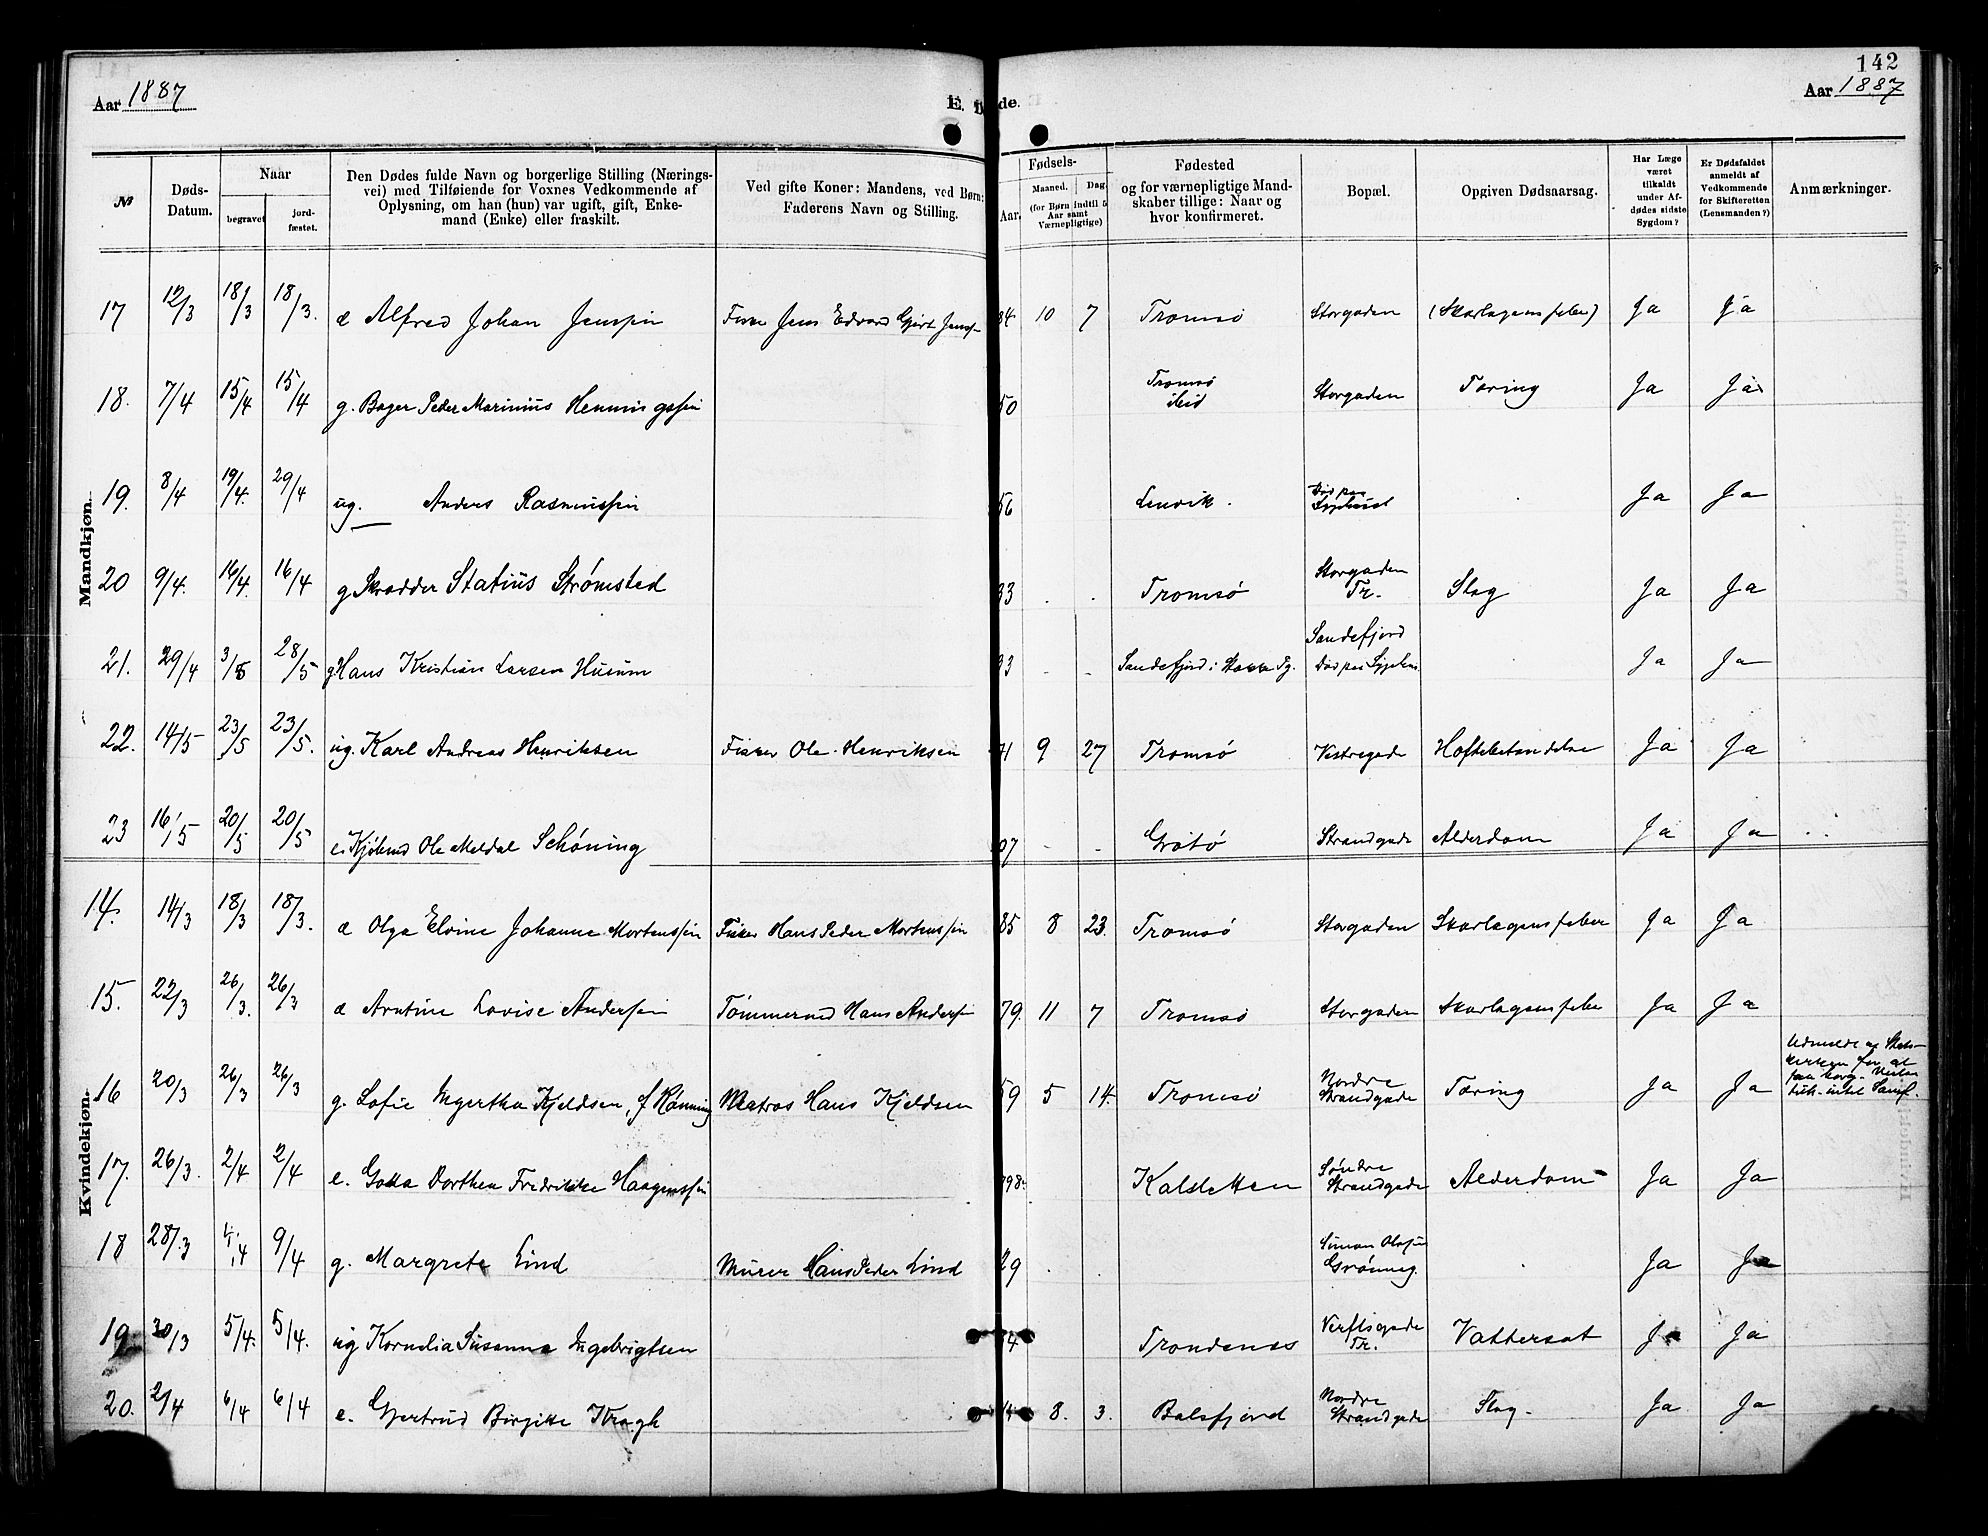 142
Aar 1887
E.
de.
Aar 1887
№
Døds-
Datum.
Naar
begravet
jord-
fæstet.
Den Dødes fulde Navn og borgerlige Stilling (Nærings-
vei) med Tilføiende for Voxnes Vedkommende af
Oplysning, om han (hun) var ugift, gift, Enke-
mand (Enke) eller fraskilt.
Ved gifte Koner: Mandens, ved Børn:
Faderens Navn og Stilling.
Fødsels-
Aar.
Maaned.
Dag
(for Børn indtil 5
Aar samt
Værnepligtige)
Fødested
og for værnepligtige Mand-
skaber tillige: Naar og
hvor konfirmeret.
Bopæl.
Opgiven Dødsaarsag.
Har Læge
været
tilkaldt
under Af-
dødes sidste
Sygdom?
Er Dødsfaldet
anmeldt af
Vedkommende
for Skifteretten
(Lensmanden?)
Anmærkninger.
Mandkjøn.
17 12/3 18/3 18/3. d Alfred Johan Jenssen Fisker Jens Edvard Gjert Jenss 84 10 7 Tromsø Storgaden (Skarlagensfeber) Ja Ja
18. 7/4 15/4 15/4 g. Bager Peder Marinius Henningssen 50 Tromsø ibid Storgaden Tæring Ja Ja
19. 8/4 19/4. 29/4 ug. Anders Rasmussen 56 Lenvik. Død paa Sygehuset Ja Ja
20 9/4. 16/4. 16/4 g Skrædder Statius Strømsted 33 Tromsø Storgaden Tr. Slag Ja Ja
21. 29/4 3/5 28/5 g Hans Kristian Larsen Husum 33 Sandefjord Sandefjord Død paa Sygehus. Ja Ja
22. 14/5 23/5 23/5. ug. Karl Andreas Henriksen Fisker Ole Henriksen 71 9 27 Tromsø Vestregade Hoftebetændelse Ja Ja
23 16/5 20/5 20/5 e. Kjøbmd Ole Meldal Schøning 07 Grøtø Strandgade Alderdom Ja Ja
Kvindekjøn.
14. 14/3 18/3 18/3. d Olga Elvine Johanne Mortenssen Fisker Hans Peder Mortenssen 85 8 23. Tromsø Storgaden Skarlagensfeber Ja Ja
15. 22/3 26/3. 26/3 d Arntine Lovise Andersen Tømmermd Hans Andersen 79. 11 7 Tromsø Storgaden Skarlagensfeber Ja Ja
16 20/3 26/3 26/3 g. Sofie Ingertha Kjeldsen, f Rønning Matros Hans Kjeldsen 59 5 14. Tromsø Nordre Strandgade Tæring Ja Ja
Udmeldt af Stats-
kirken for at
17. 26/3. 2/4 2/4 e. Dorthea Fredrikke Haagenssen 798. Kalsletten Søndre Strandgade Alderdom Ja Ja
18 28/3 4/4 9/4 g. Margrete Lind Murer Hans Peder Lind 29 Simon Olsen Grønneg. Ja Ja
19 30/3 5/4. 5/4. ug Kornelia Susanna Ingebrigtsen 74 Trondenes Verftsgade Tr. Vattersot Ja Ja
20. 2/4 6/4 6/4 e. Gjertrud Birgitte Kragh 8. 3. Balsfjord Nordre Strandgade Slag. Ja Ja